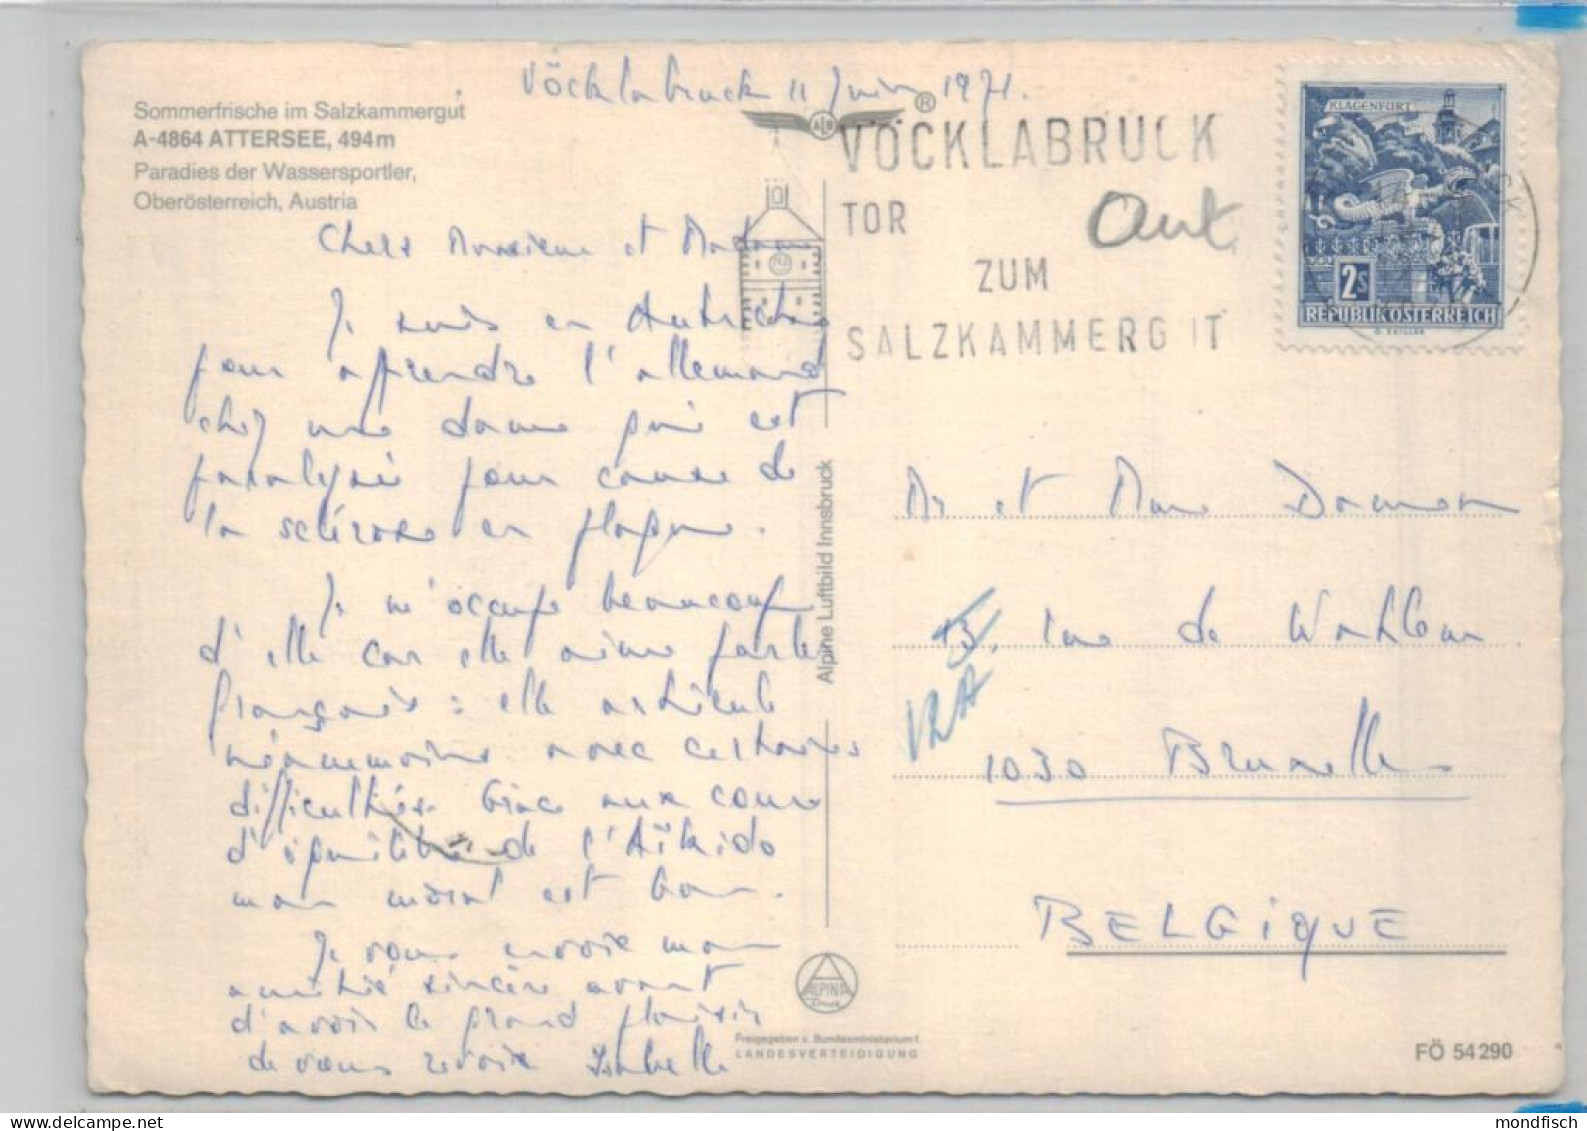 Vöcklabruck 11 Juin 1971.
Sommerfrische im Salzkammergut
A-4864 ATTERSEE, 494 m
Paradies der Wassersportler,
Oberösterreich, Austria
ALR ®
VÖCKLABRUCK
TOR
ZUM
SALZKAMMERG IT
KLAGENFURT
2s
REPUBLIK ÖSTERREICH
Chers Monsieur et Madame
Je suis en Autriche
pour apprendre l'allemand
chez une dame qui est
paralysée pour cause de
la sclérose en plaques.
Je m'occupe beaucoup
d'elle car elle aime parler
français : elle articule
néanmoins avec certaines
difficultés. Grâce aux cours
d'équilibre de l'Aïkido
mon moral est bon.
Je vous envoie mon
amitié sincère avant
d'avoir le grand plaisir
de vous revoir Isabelle
Alpine Luftbild Innsbruck
Mr et Mme
13, rue de
12A
1030 Bruxelles
BELGIQUE
ALPINA
Druck
Freigegeben v. Bundesministerium f.
LANDESVERTEIDIGUNG
FÖ 54290
mondfisch